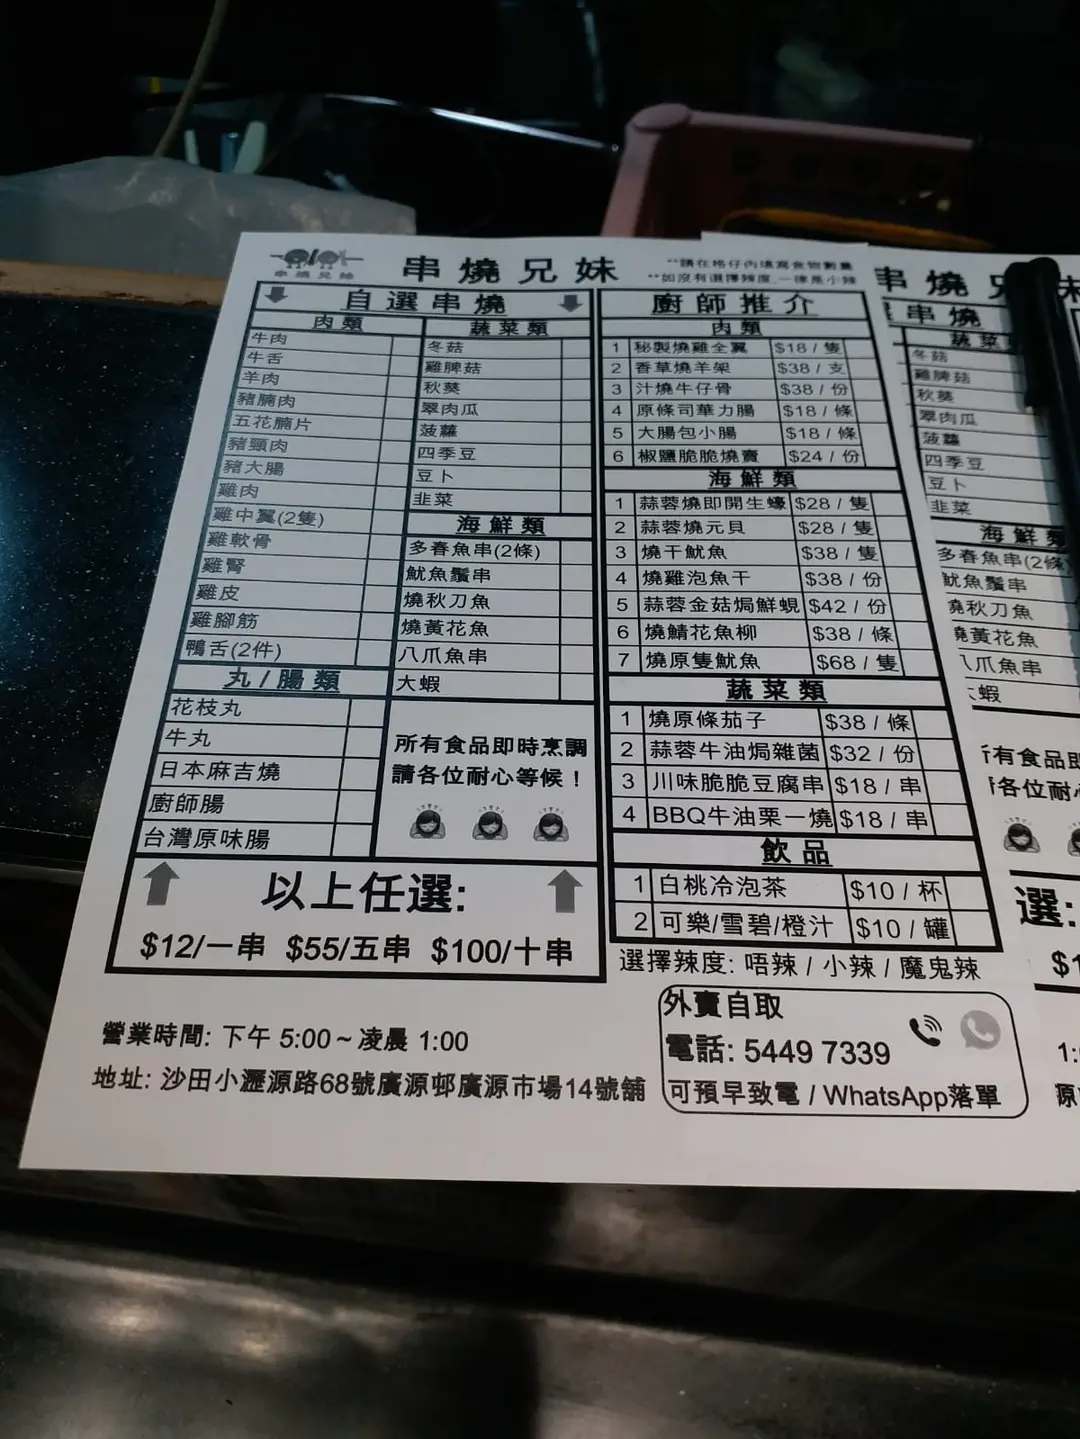 串燒兄妹
串燒兄妹
**請在格仔內填寫食物數量
**如沒有選擇辣度,一律是小辣
自選串燒
肉類
牛肉
牛舌
羊肉
豬腩肉
五花腩片
豬頸肉
豬大腸
雞肉
雞中翼(2隻)
雞軟骨
雞腎
雞皮
雞腳筋
鴨舌(2件)
丸/腸類
花枝丸
牛丸
日本麻吉燒
廚師腸
台灣原味腸
蔬菜類
冬菇
雞脾菇
秋葵
翠肉瓜
菠蘿
四季豆
豆卜
韭菜
海鮮類
多春魚串(2條)
魷魚鬚串
燒秋刀魚
燒黃花魚
八爪魚串
大蝦
所有食品即時烹調
請各位耐心等候！
以上任選:
$12/一串 $55/五串 $100/十串
廚師推介
肉類
1 秘製燒雞全翼 $18 / 隻
2 香草燒羊架 $38 / 支
3 汁燒牛仔骨 $38 / 份
4 原條司華力腸 $18 / 條
5 大腸包小腸 $18 / 條
6 椒鹽脆脆燒賣 $24 / 份
海鮮類
1 蒜蓉燒即開生蠔 $28 / 隻
2 蒜蓉燒元貝 $28 / 隻
3 燒干魷魚 $38 / 隻
4 燒雞泡魚干 $38 / 份
5 蒜蓉金菇焗鮮蜆 $42 / 份
6 燒鯖花魚柳 $38 / 條
7 燒原隻魷魚 $68 / 隻
蔬菜類
1 燒原條茄子 $38 / 條
2 蒜蓉牛油焗雜菌 $32 / 份
3 川味脆脆豆腐串 $18 / 串
4 BBQ牛油栗一燒 $18 / 串
飲品
1 白桃冷泡茶 $10 / 杯
2 可樂/雪碧/橙汁 $10 / 罐
選擇辣度: 唔辣 / 小辣 / 魔鬼辣
營業時間: 下午 5:00 ~ 凌晨 1:00
地址: 沙田小瀝源路68號廣源邨廣源市場14號舖
外賣自取
電話: 5449 7339
可預早致電 / WhatsApp落單
串燒兄
串燒
蔬菜
冬菇
雞脾菇
秋葵
翠肉瓜
菠蘿
四季豆
豆卜
韭菜
海鮮
多春魚串(2條)
魷魚鬚串
燒秋刀魚
燒黃花魚
八爪魚串
大蝦
所有食品即
各位耐
選:
$1
1:
源